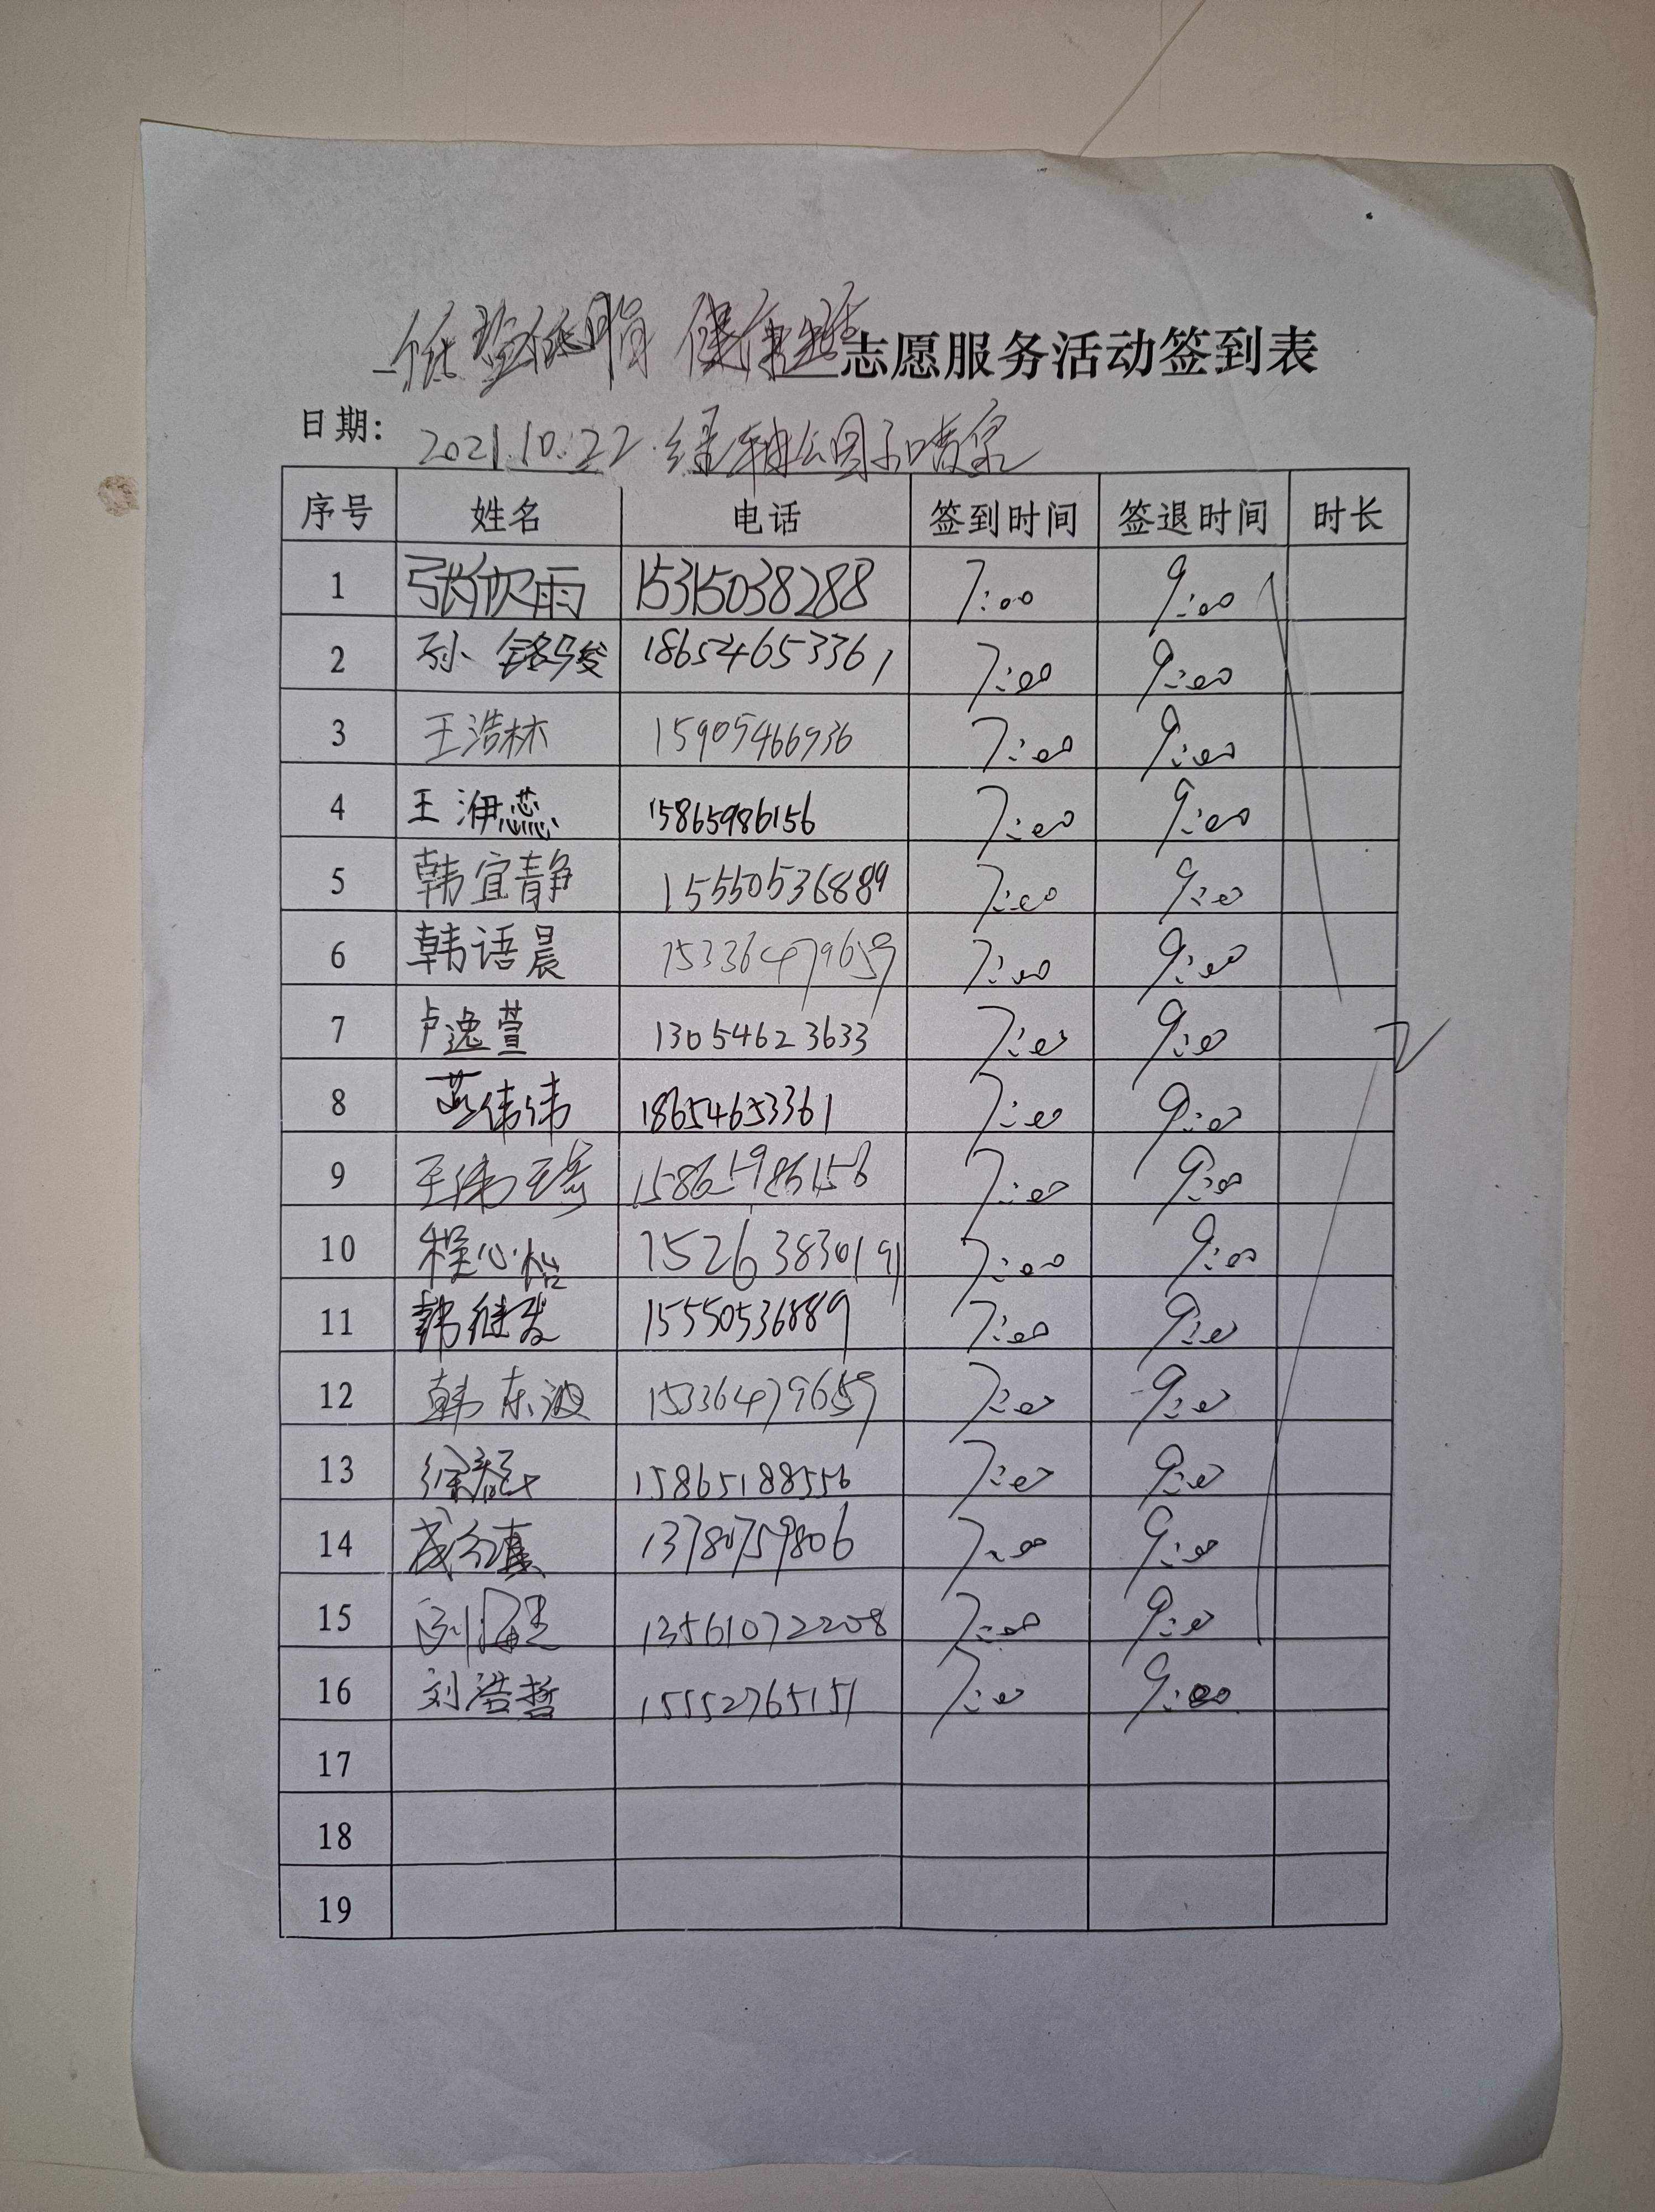 低盐低脂 健康 志愿服务活动签到表
日期: 2021.10.22 绿轴公园和喷泉
序号 姓名 电话 签到时间 签退时间 时长
1 张欣雨 15315038288 7:00 9:00
2 孙铭骏 18654653361 7:00 9:00
3 王浩林 15905466936 7:00 9:00
4 王洢蕊 15865986156 7:00 9:00
5 韩宜静 15550536889 7:00 9:00
6 韩语晨 15336479659 7:00 9:00
7 卢逸萱 13054623633 7:00 9:00
8 燕伟伟 18654653361 7:00 9:00
9 王伟 15865986156 7:00 9:00
10 程心怡 15263830191 7:00 9:00
11 韩继发 15550536889 7:00 9:00
12 韩东波 15336479659 7:00 9:00
13 徐 15865188556 7:00 9:00
14 成 13780759806 7:00 9:00
15 刘 13561072208 7:00 9:00
16 刘浩哲 15552765151 7:00 9:00
2
17
18
19